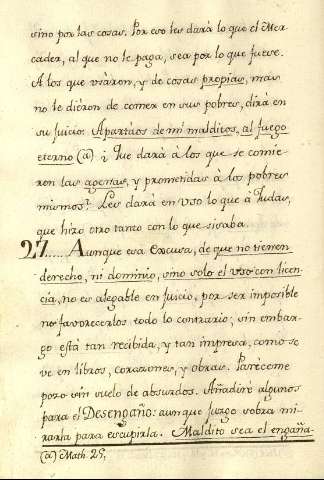 sino por las cosas. Por eso les dará lo que el Mer
cader, al que no le paga, sea por lo que fuese.
A los que usáron, y de cosas propias, mas
no le diéron de comer en sus pobres, dirá en
su juicio: Apartáos de mi malditos, al fuego
eterno (a) i Que dará à los que se comie
ron las agenas, y prometidas à los pobres
mismos? Les dará en uso lo que à Judas,
que hizo otro tanto con lo que sisaba.
27..... Aunque esa Excusa, de que no tienen
derecho, ni dominio, sino solo el uso con licen
cia, no es alegable en juicio, por ser imposible
no favorecerlos todo lo contrario; sin embar
go està tan recibida, y tan impresa, como se
ve en libros, corazones, y obras. Paréceme
pozo sin suelo de absurdos. Añadiré algunos
para el Desengaño: aunque juzgo sobra mi
rarla para escupirla. Maldito sea el engaña
(a) Math. 25,